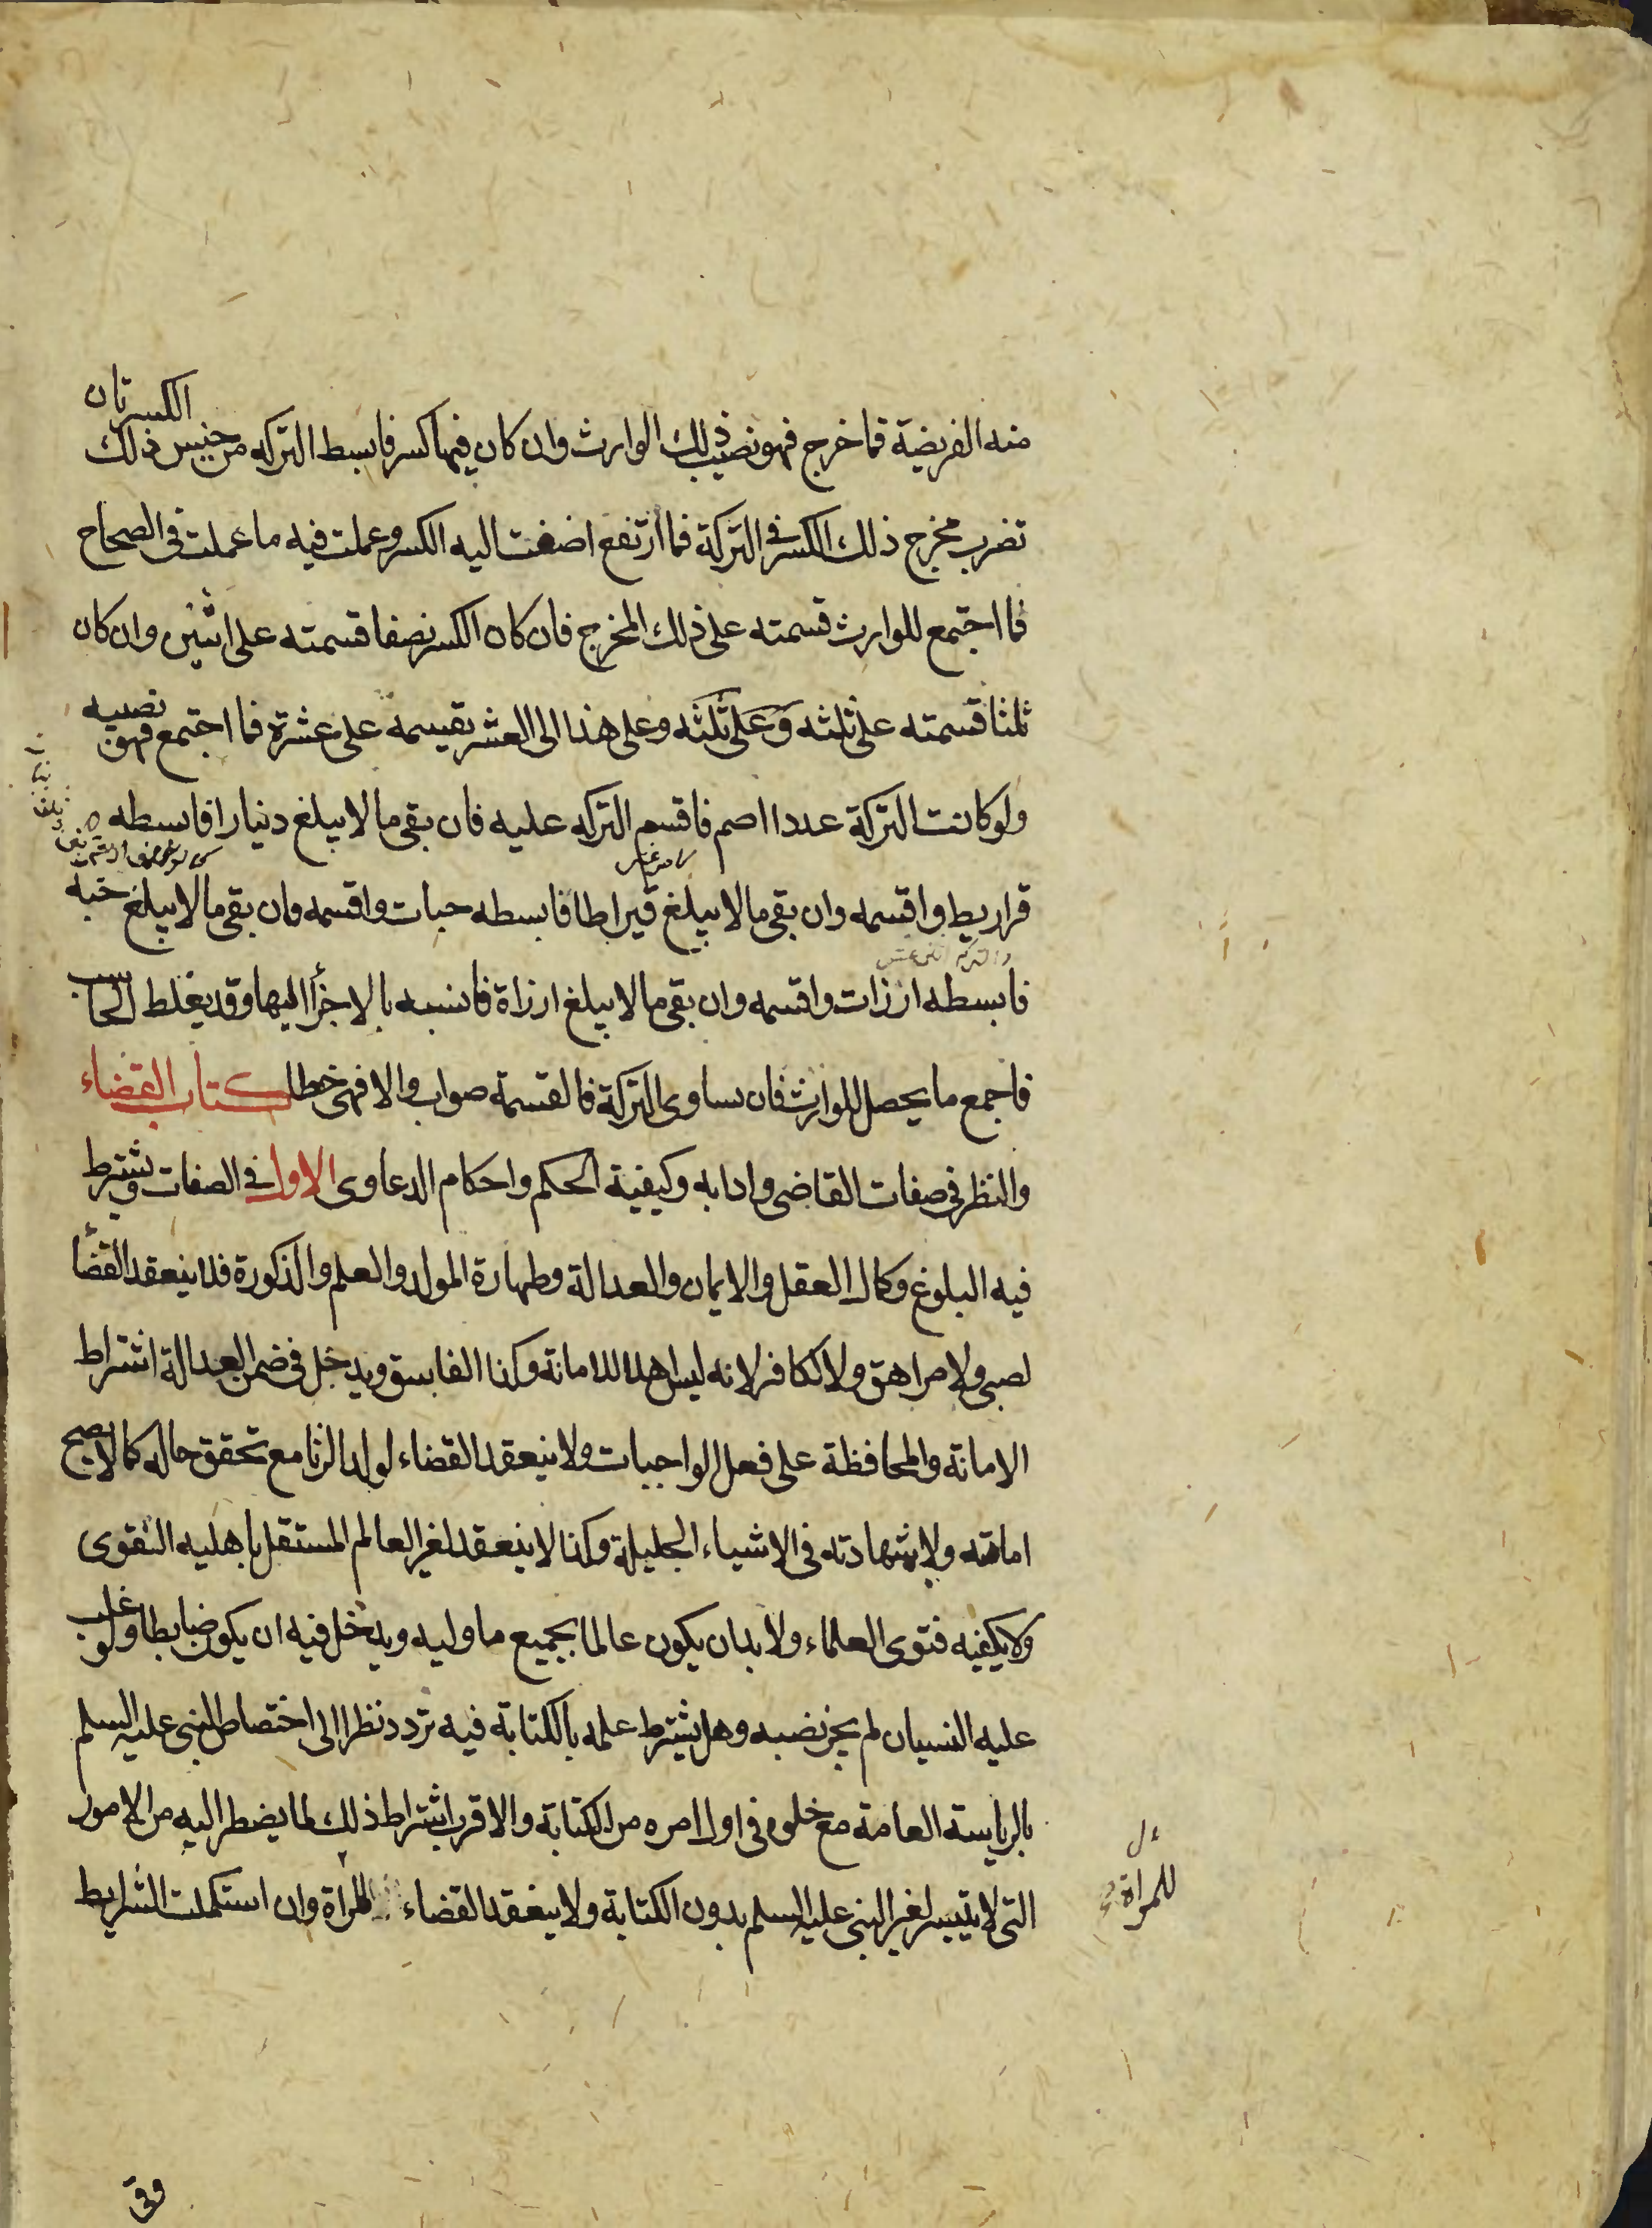 منه الفريضة فما خرج فهو نصيب ذلك الوارث وان كان فيها كسر فابسط التركه من جنس ذلك الكسر بان
تضرب مخرج ذلك الكسر في التركة فما ارتفع اضفت اليه الكسر وعملت فيه ما عملت في الصحاح
فما اجتمع للوارث قسمته على ذلك المخرج فان كان الكسر نصفا قسمته على اثنين وان كان
ثلثا قسمته على ثلثه وعلى ثلثه وعلى هذا الى العشر تقيسمه على عشرة فما اجتمع فهو نصيبه
ولو كانت التركة عددا اصم فاقسم التركه عليه فان بقى ما لا يبلغ دنيارا فابسطه
قراريط واقسمه وان بقى ما لا يبلغ قيراطا فابسطه حبات واقسمه وان بقى ما لا يبلغ حبه
فابسطه ارزات واقسمه وان بقى ما لا يبلغ ارزاة فانسبه بالاجزأ اليها وقد يغلط الحاسب
فاجمع ما يحصل للوارث فان ساوى التركة فالقسمة صواب والا فهى خطا كتاب القضاء
والنظر في صفات القاضى وادابه وكيفية الحكم واحكام الدعاوى الاول في الصفات ويشترط
فيه البلوغ وكمال العقل والايمان والعدالة وطهارة المولد والعلم والذكورة فلا ينعقد القضأ
لصبى ولا مراهق ولا لكافر لانه ليس اهلا للامانة وكذا الفاسق ويدخل في ضمن العدالة اشتراط
الامانة والمحافظة على فعل الواجبات ولا ينعقد القضاء لولد الزنا مع تحقق حاله كما لا يصح
امامته ولا شهادته في الاشياء الجليلة وكذا لا ينعقد لغير العالم المستقل باهليه الفقوى
ولا يكفيه فتوى العلماء ولا بد ان يكون عالما بجميع ما وليه ويدخل فيه ان يكون ضابطا ولو غلب
عليه النسيان لم يجز نصبه وهل يشترط علمه بالكتابة فيه تردد نظرا الى اختصاص النبى عليه السلم
بالرياسة العامة مع خلوه في اول امره من الكتابة والاقرب اشتراط ذلك لما يضطر اليه من الامور
التى لا يتيسر لغير النبى عليه السلم بدون الكتابة ولا ينعقد القضاء للمراة وان استكملت الشرايط
للمراة
وفى